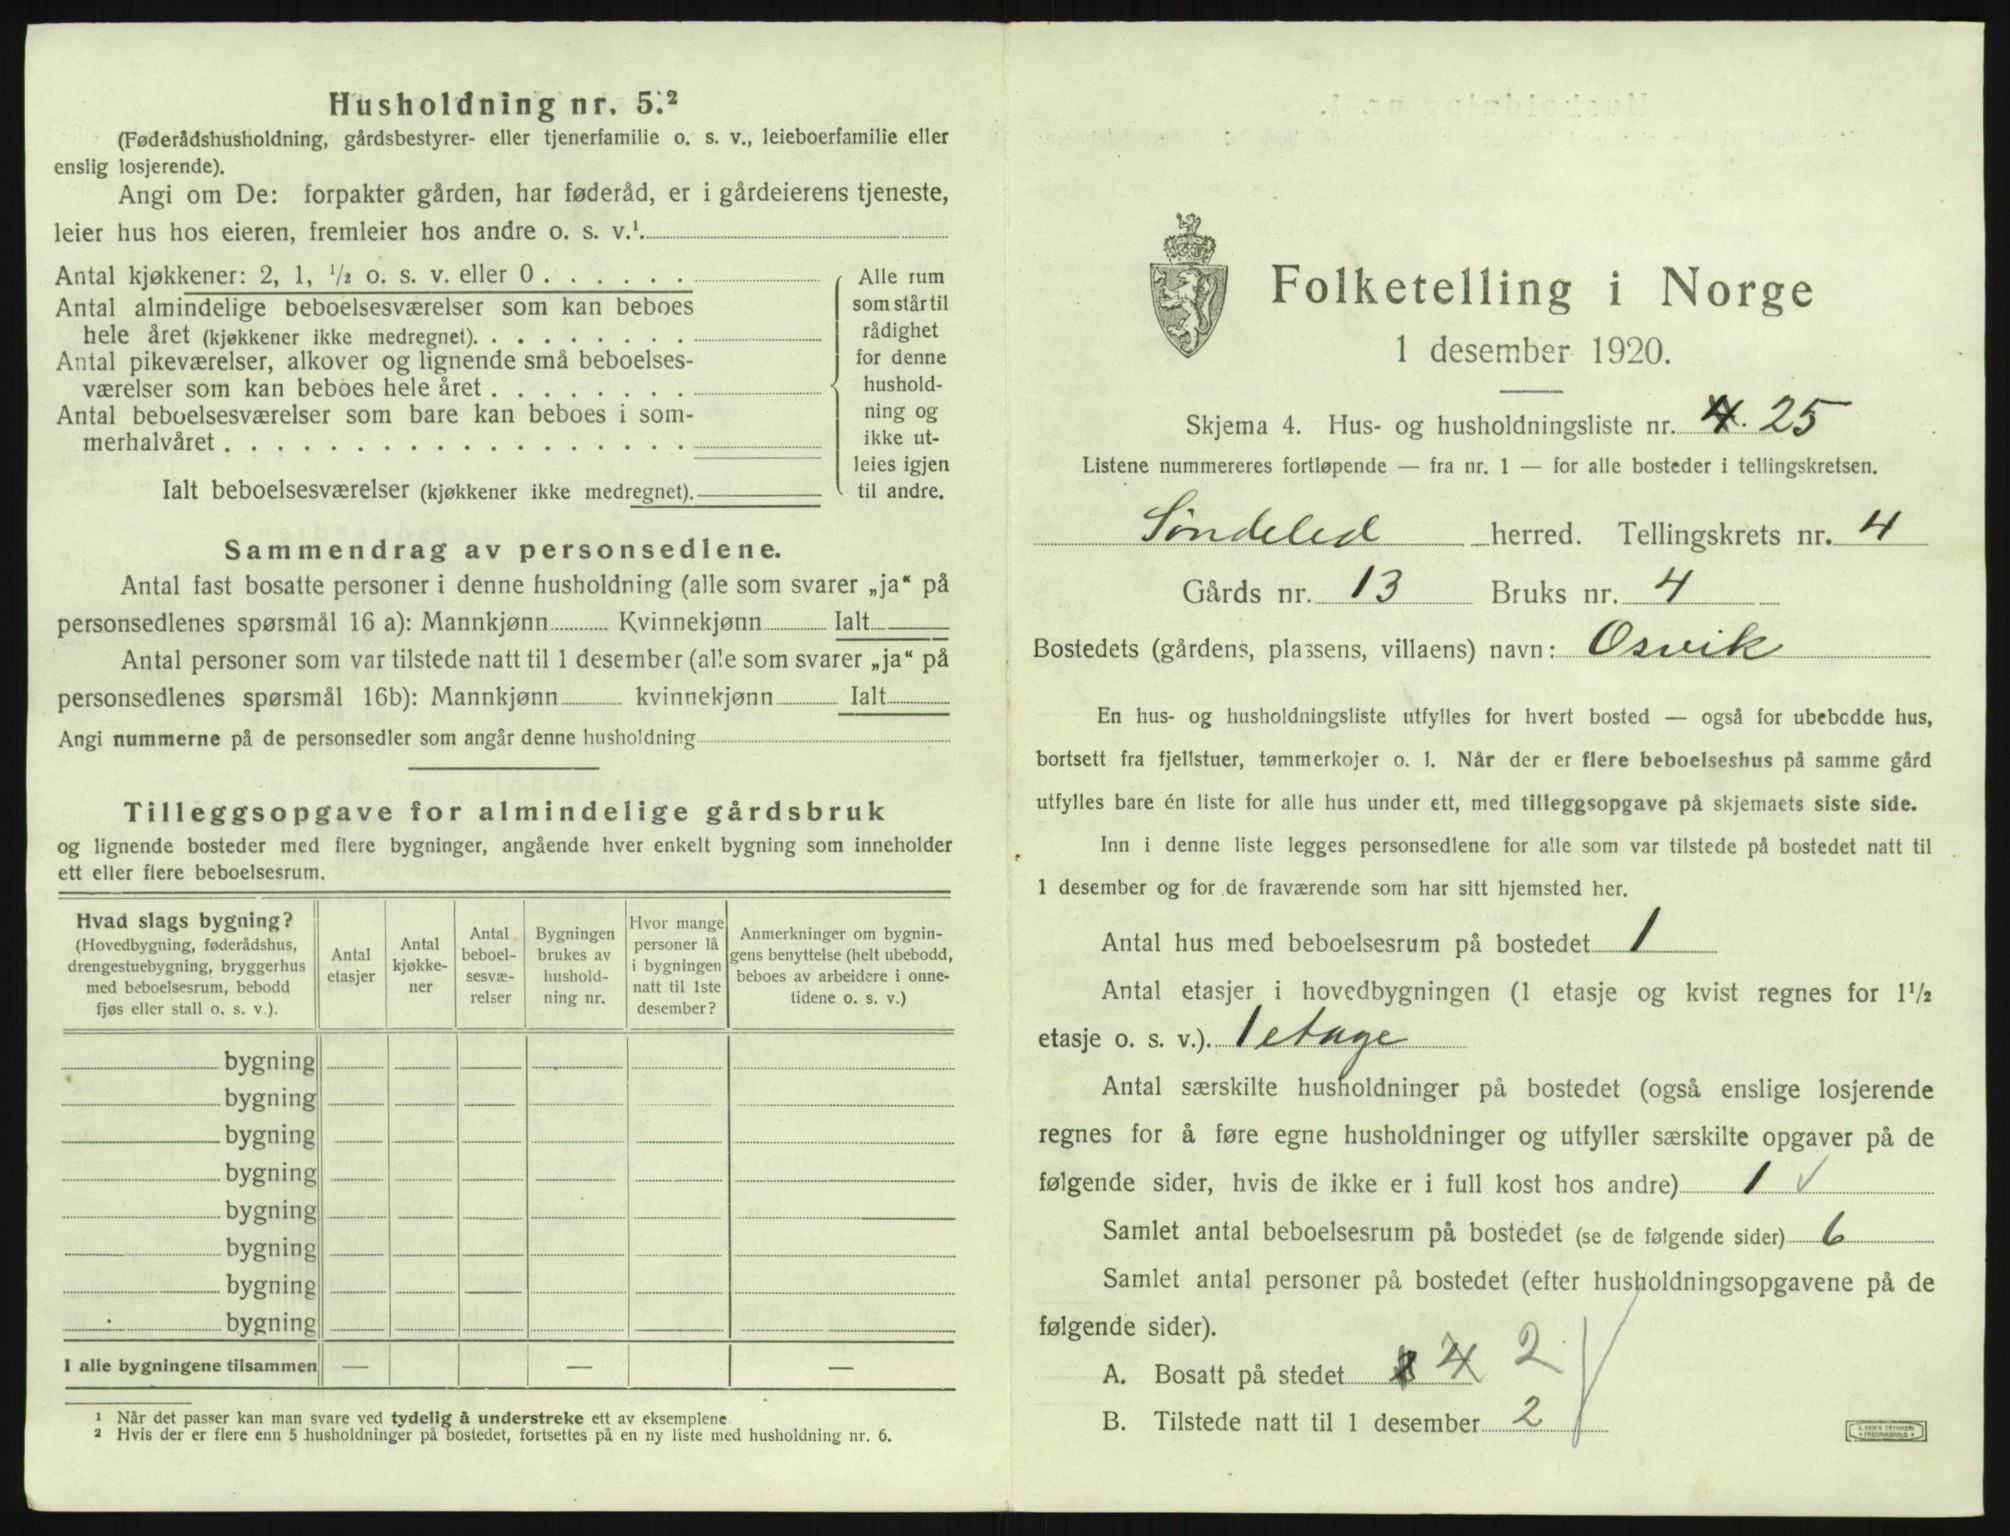 Husholdning nr. 5.²
(Føderådshusholdning, gårdsbestyrer- eller tjenerfamilie o. s. v., leieboerfamilie eller
enslig losjerende).
Angi om De: forpakter gården, har føderåd, er i gårdeierens tjeneste,
leier hus hos eieren, fremleier hos andre o. s. v.¹.
Antal kjøkkener: 2, 1, ¹/₂ o. s. v. eller 0 . . . . . .
Antal almindelige beboelsesværelser som kan beboes
hele året (kjøkkener ikke medregnet). . . . . . . . .
Antal pikeværelser, alkover og lignende små beboelses-
værelser som kan beboes hele året . . . . . . . .
Antal beboelsesværelser som bare kan beboes i som-
merhalvåret . . . . . . . . . . . . . . . . . .
Ialt beboelsesværelser (kjøkkener ikke medregnet).
Alle rum
som står til
rådighet
for denne
hushold-
ning og
ikke ut-
leies igjen
til andre.
Sammendrag av personsedlene.
Antal fast bosatte personer i denne husholdning (alle som svarer „ja“ på
personsedlenes spørsmål 16 a): Mannkjønn Kvinnekjønn Ialt
Antal personer som var tilstede natt til 1 desember (alle som svarer „ja“ på
personsedlenes spørsmål 16b): Mannkjønn kvinnekjønn Ialt
Angi nummerne på de personsedler som angår denne husholdning
Tilleggsopgave for almindelige gårdsbruk
og lignende bosteder med flere bygninger, angående hver enkelt bygning som inneholder
ett eller flere beboelsesrum.
Hvad slags bygning?
(Hovedbygning, føderådshus,
drengestuebygning, bryggerhus
med beboelsesrum, bebodd
fjøs eller stall o. s. v.).
Antal
etasjer
Antal
kjøkke-
ner
Antal
beboel-
sesvæ-
relser
Bygningen
brukes av
hushold-
ning nr.
Hvor mange
personer lå
i bygningen
natt til 1ste
desember?
Anmerkninger om bygnin-
gens benyttelse (helt ubebodd,
beboes av arbeidere i onne-
tidene o. s. v.)
bygning
bygning
bygning
bygning
bygning
bygning
bygning
bygning
I alle bygningene tilsammen — — —
¹ Når det passer kan man svare ved tydelig å understreke ett av eksemplene
² Hvis der er flere enn 5 husholdninger på bostedet, fortsettes på en ny liste med husholdning nr. 6.
Folketelling i Norge
1 desember 1920.
Skjema 4. Hus- og husholdningsliste nr. 4. 25
Listene nummereres fortløpende — fra nr. 1 — for alle bosteder i tellingskretsen.
Søndeled herred. Tellingskrets nr. 4
Gårds nr. 13 Bruks nr. 4
Bostedets (gårdens, plassens, villaens) navn: Osvik
En hus- og husholdningsliste utfylles for hvert bosted — også for ubebodde hus,
bortsett fra fjellstuer, tømmerkojer o. l. Når der er flere beboelseshus på samme gård
utfylles bare én liste for alle hus under ett, med tilleggsopgave på skjemaets siste side.
Inn i denne liste legges personsedlene for alle som var tilstede på bostedet natt til
1 desember og for de fraværende som har sitt hjemsted her.
Antal hus med beboelsesrum på bostedet 1
Antal etasjer i hovedbygningen (1 etasje og kvist regnes for 1¹/₂
etasje o. s. v.). 1 etage
Antal særskilte husholdninger på bostedet (også enslige losjerende
regnes for å føre egne husholdninger og utfyller særskilte opgaver på de
følgende sider, hvis de ikke er i full kost hos andre) 1 ✓
Samlet antal beboelsesrum på bostedet (se de følgende sider) 6
Samlet antal personer på bostedet (efter husholdningsopgavene på de
følgende sider).
A. Bosatt på stedet 4 2
B. Tilstede natt til 1 desember 2